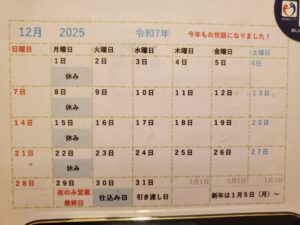 12月 2025 令和7年 今年もお世話になりました！
日曜日 月曜日 火曜日 水曜日 木曜日 金曜日 土曜日
1日 2日 3日 4日 5日 6日
休み
7日 8日 9日 10日 11日 12日 13日
休み
14日 15日 16日 17日 18日 19日 20日
休み
21日 22日 23日 24日 25日 26日 27日
休み
28日 29日 30日 31日 1月1日 1月2日 1月3日
夜のみ営業 仕込み日 引き渡し日 新年は1月5日（月）～
最終日